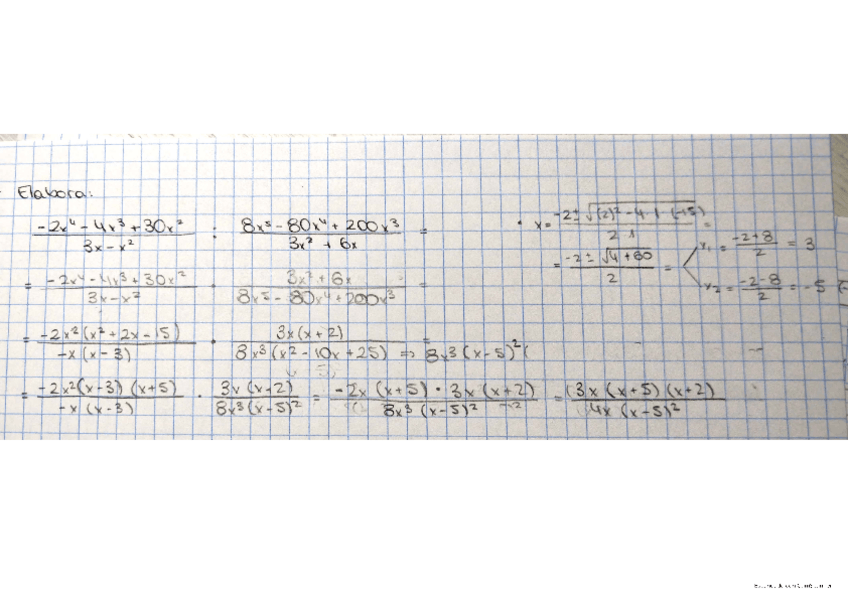 Elabora:
(-2x⁴ - 4x³ + 30x²)/(3x - x²) : (8x⁵ - 80x⁴ + 200x³)/(3x² + 6x) =
= (-2x⁴ - 4x³ + 30x²)/(3x - x²) · (3x² + 6x)/(8x⁵ - 80x⁴ + 200x³) =
= (-2x²(x² + 2x - 15))/(-x(x - 3)) · (3x(x + 2))/(8x³(x² - 10x + 25)) = ⇒ 8x³(x - 5)²(
= (-2x²(x - 3)(x + 5))/(-x(x - 3)) · (3x(x + 2))/(8x³(x - 5)²) = (-2x(x + 5) · 3x(x + 2))/(8x³(x - 5)²) = (3x(x + 5)(x + 2))/(4x(x - 5)²)
· x = (-2 ± √((2)² - 4 · 1 · (-15)))/(2·1) =
= (-2 ± √(4 + 60))/2 =
x₁ = (-2 + 8)/2 = 3
x₂ = (-2 - 8)/2 = -5